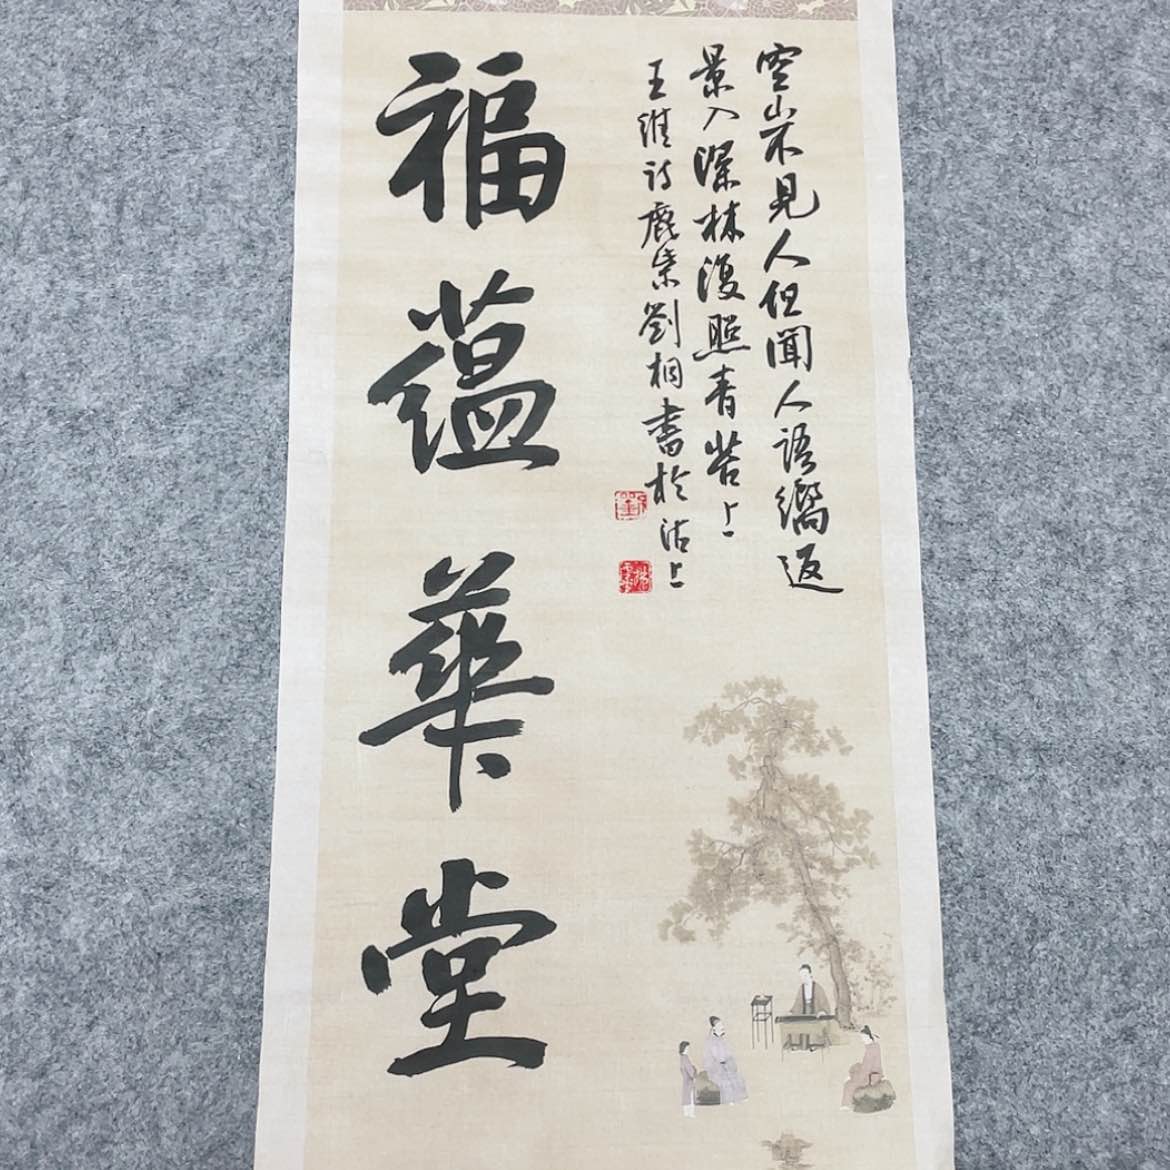 空山不見人但聞人語響返
景入深林復照青苔上
王維詩鹿柴劉桐書於沽上
福蘊華堂